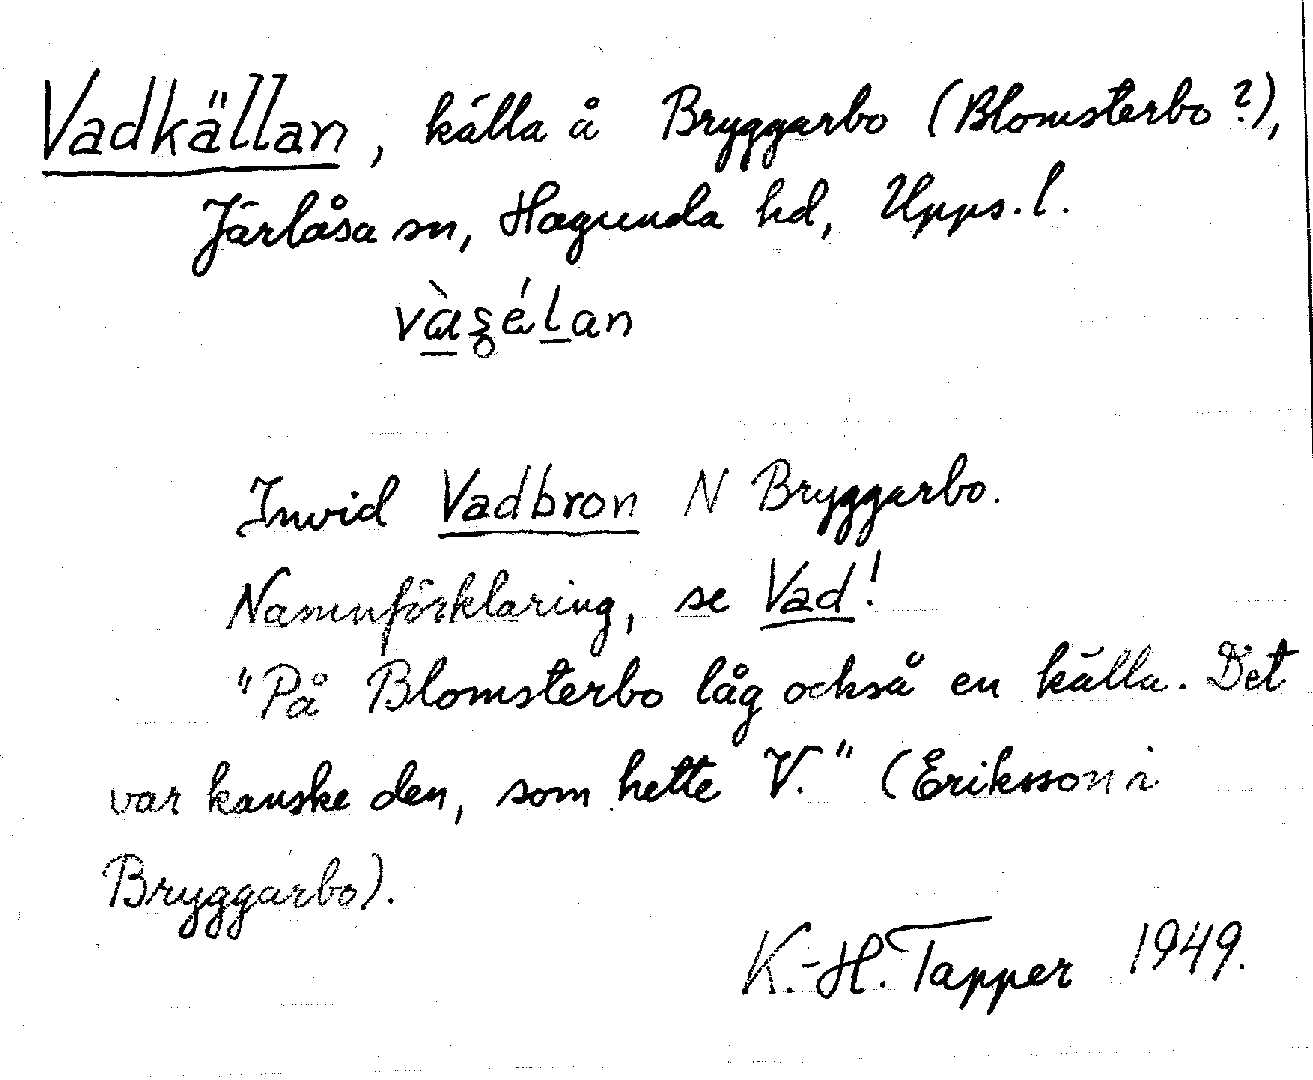 Vadkällan, källa å Bryggarbo (Blomsterbo?),
Järlåsa sn, Hagunda hd, Upps. l.
Invid Vadbron N Bryggarbo.
Namnförklaring, se Vad!
"På Blomsterbo låg också en källa. Det
var kanske den, som hette V." (Eriksson i
Bryggarbo).
K.-H. Tapper 1949.